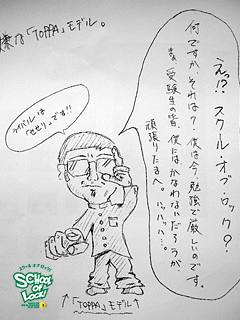 な「TOPPA」モデル。
えっ!? スクール・オブ・ロック?
何ですか、それは?僕は今、勉強で厳しいのです。
まあ、受験生の皆、僕にはかなわないだろうが
頑張りたまへ。ハッハッハ…。
ライバルは
「させり」です!!
SCHOOL
OF
LOCK!
↑「TOPPA」モデル↑